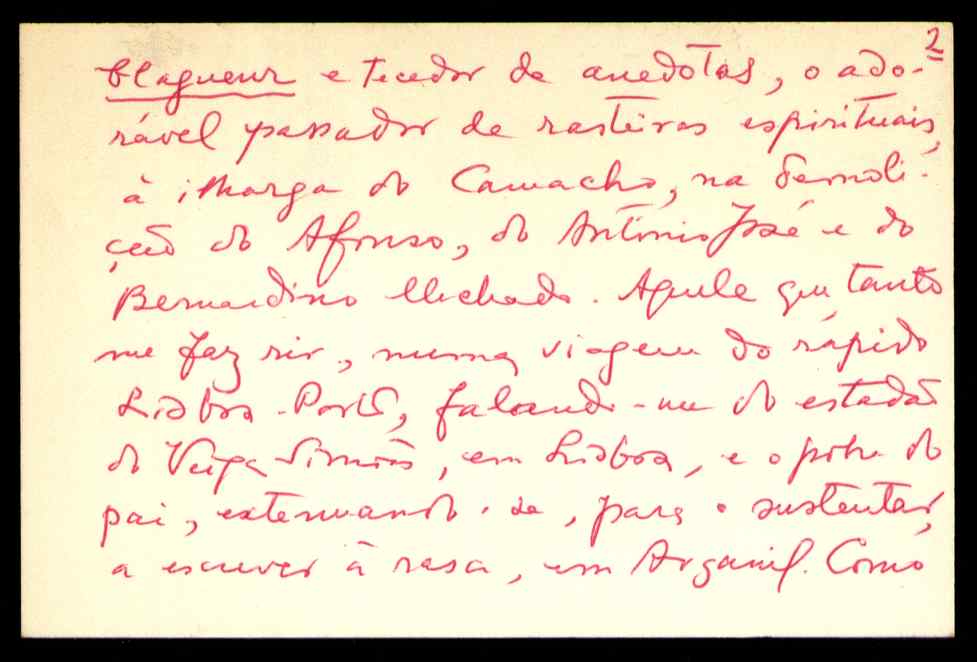 2
blagueur e tecedor de anedotas, o ado-
rável passador de rasteiras espirituais,
à ilharga do Camacho, na demoli-
ção do Afonso, do António José e do
Bernardino Machado. Aquele que tanto
me faz rir, numa viagem do rápido
Lisboa-Porto, falando-me do estadão
do Veiga Simões, em Lisboa, e o pobre do
pai, extenuando-se, para o sustentar,
a escrever à rasa, em Arganil. Como